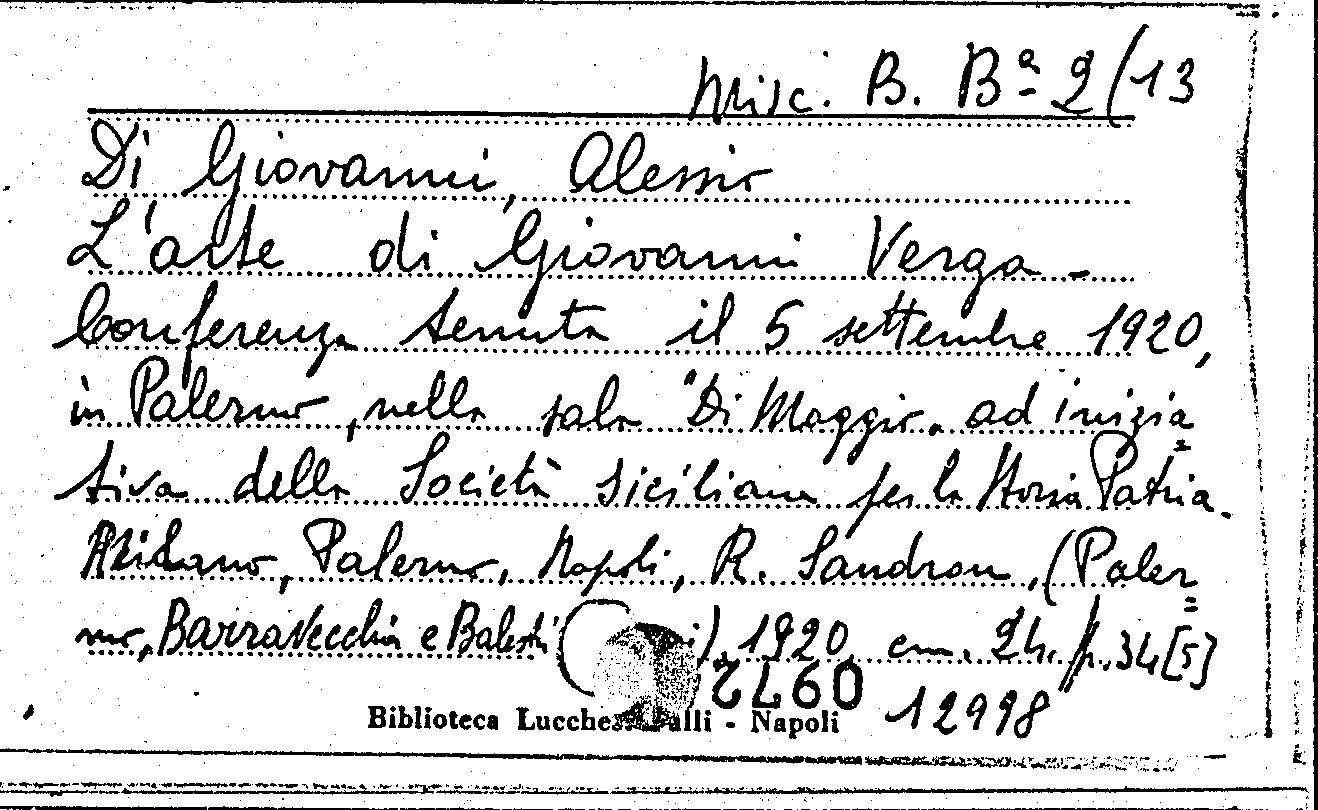 Misc. B. Bª 2(13
Di Giovanni, Alessio
L'arte di Giovanni Verga -
Conferenza tenuta il 5 settembre 1920,
in Palermo, nella sala "Di Maggio" ad inizia=
tiva della Società siciliana per la Storia Patria.
Milano, Palermo, Napoli, R. Sandron, (Paler=
mo, Barravecchia e Balestri 1920, cm. 24. p. 34[5]
0972
12998
Biblioteca Lucche Palli - Napoli